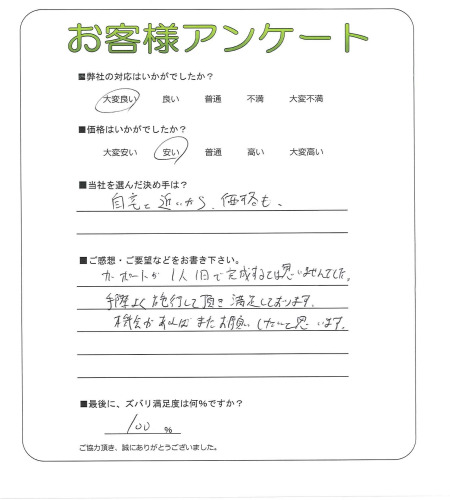 お客様アンケート
■弊社の対応はいかがでしたか？
大変良い 良い 普通 不満 大変不満
■価格はいかがでしたか？
大変安い 安い 普通 高い 大変高い
■当社を選んだ決め手は？
自宅と近いから、価格も、
■ご感想・ご要望などをお書き下さい。
カーポートが1人1日で完成するとは思いませんでした。
手際よく施行して頂き満足しております。
機会があればまたお願いしたいと思います。
■最後に、ズバリ満足度は何％ですか？
100 ％
ご協力頂き、誠にありがとうございました。